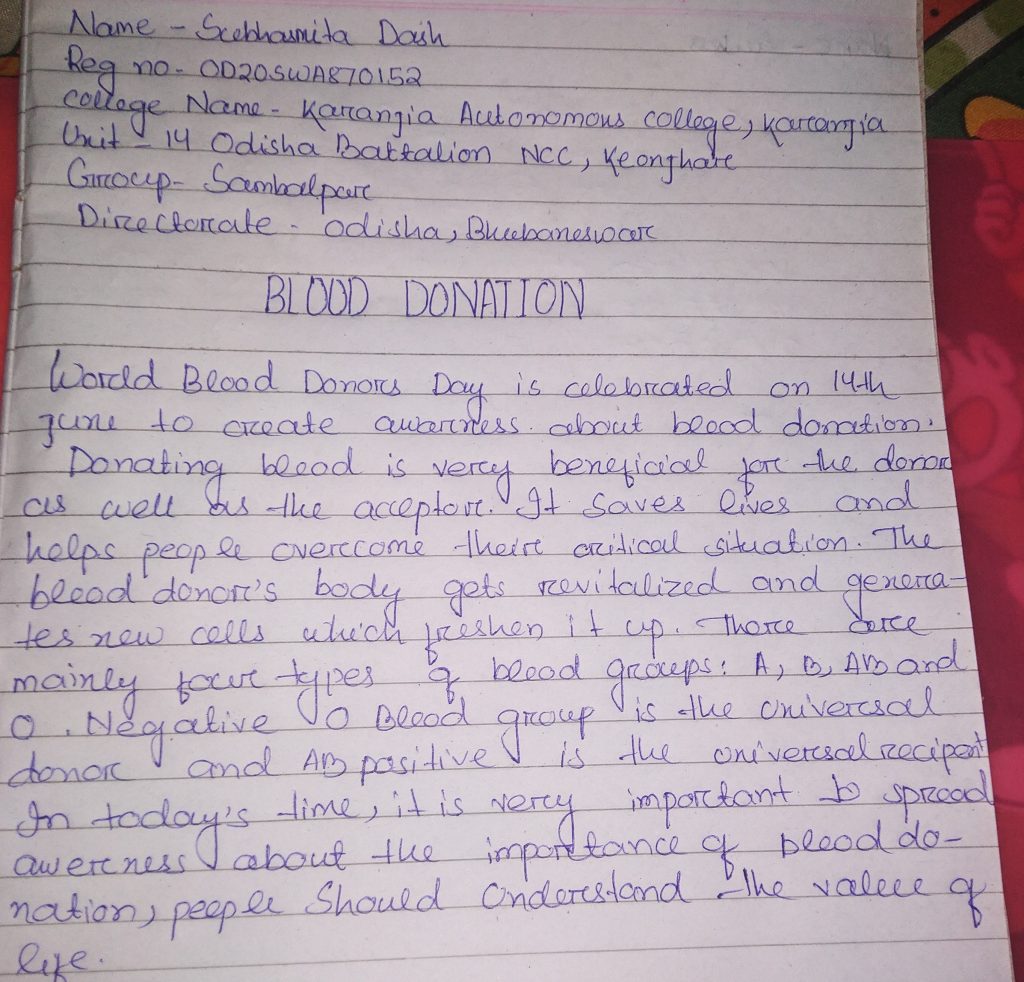 Name - Subhasmita Dash
Reg no - OD20SWA870152
College Name - Karanjia Autonomous college, Karanjia
Unit - 14 Odisha Battalion NCC, Keonghar
Group - Sambalpur
Directorate - Odisha, Bhubaneswar
BLOOD DONATION
World Blood Donors Day is celebrated on 14th
june to create awarness about blood donation.
Donating blood is very beneficial for the donor
as well as the acceptor. It saves lives and
helps people overcome their critical situation. The
blood donor's body gets revitalized and genera-
tes new cells which freshen it up. There are
mainly four types of blood groups: A, B, AB and
O. Negative O Blood group is the universal
donor and AB positive is the universal recipent
In today's time, it is very important to spread
awerness about the importance of blood do-
nation, people should understand the value of
life.